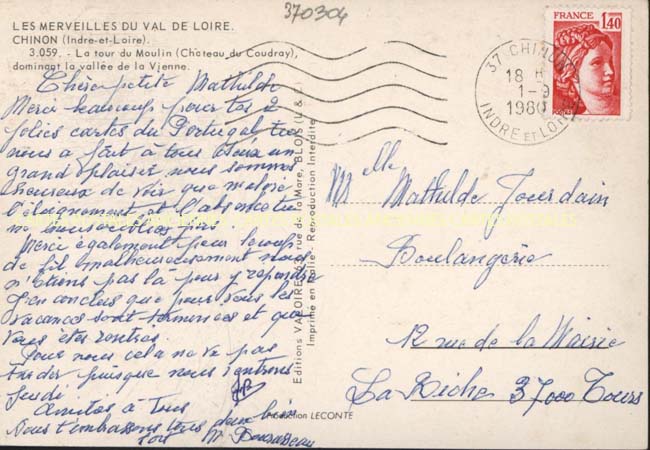 370304
LES MERVEILLES DU VAL DE LOIRE.
CHINON (Indre-et-Loire).
3.059. - La tour du Moulin (Château du Coudray),
dominant la vallée de la Vienne.
Chère petite Mathilde
Merci beaucoup pour tes 2
jolies cartes du Portugal tu
nous a fait à tous deux un
grand plaisir nous sommes
heureux de voir que malgré
l'éloignement et l'absence tu
ne nous oublies pas.
Merci également pour le coup
de fil malheureusement nous
n'étions pas là pour y répondre
J'en conclus que pour vous les
vacances sont terminées et que
vous êtes rentrés.
Pour nous cela ne va pas
tarder puisque nous rentrons
Jeudi
Amitiés à tous
Nous t'embrassons tous deux bien
Editions VALOIRE, rue de la Mare, BLOIS (L & C)
Imprimé en Italie - Reproduction Interdite
Production LECONTE
37 CHINON
18 H
1-9
1980
INDRE ET LOIRE
FRANCE
1,40
Melle Mathilde Jourdain
Boulangerie
12 rue de la Mairie
La Riche 37000 Tours